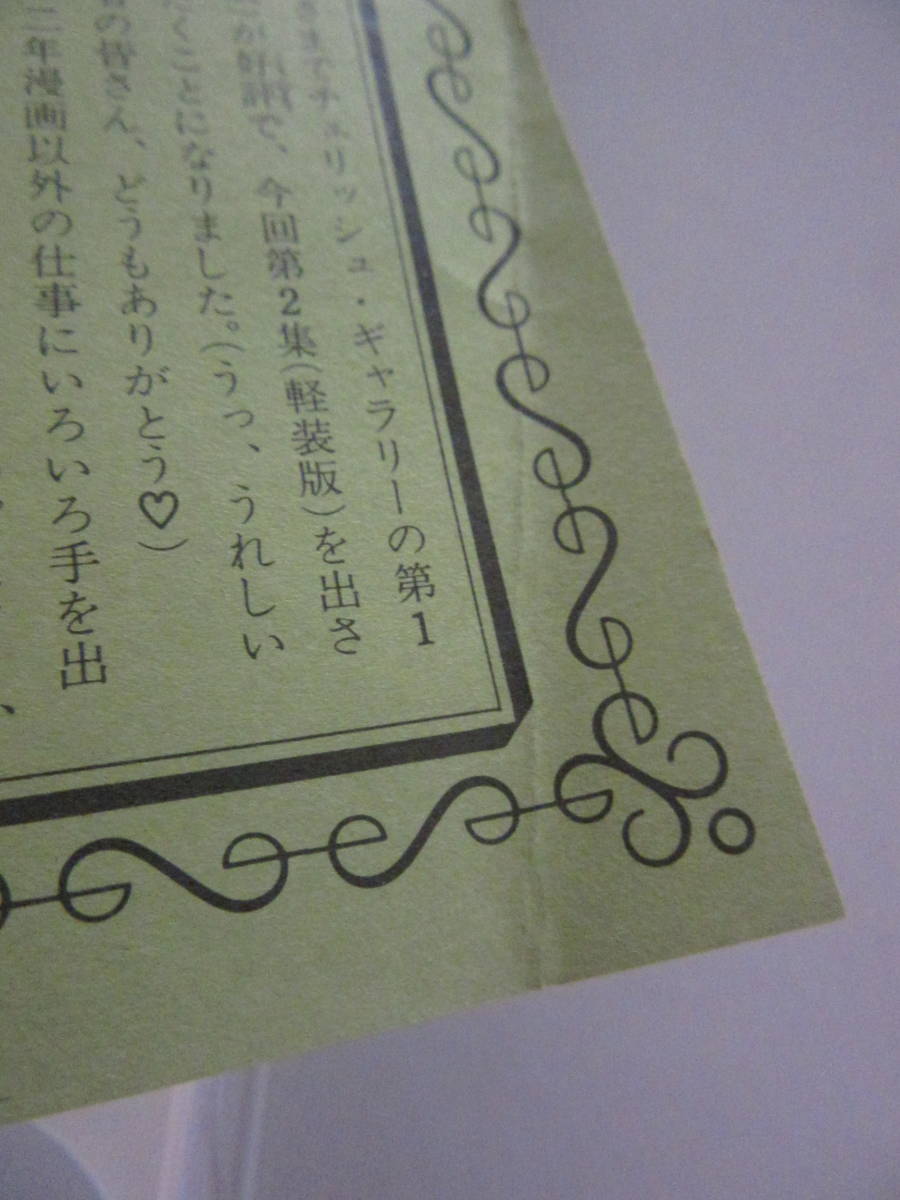 までチェリッシュ・ギャラリーの第1
が好評で、今回第2集(軽装版)を出さ
くことになりました。(うっ、うれしい
の皆さん、どうもありがとう♡)
二年漫画以外の仕事にいろいろ手を出
、